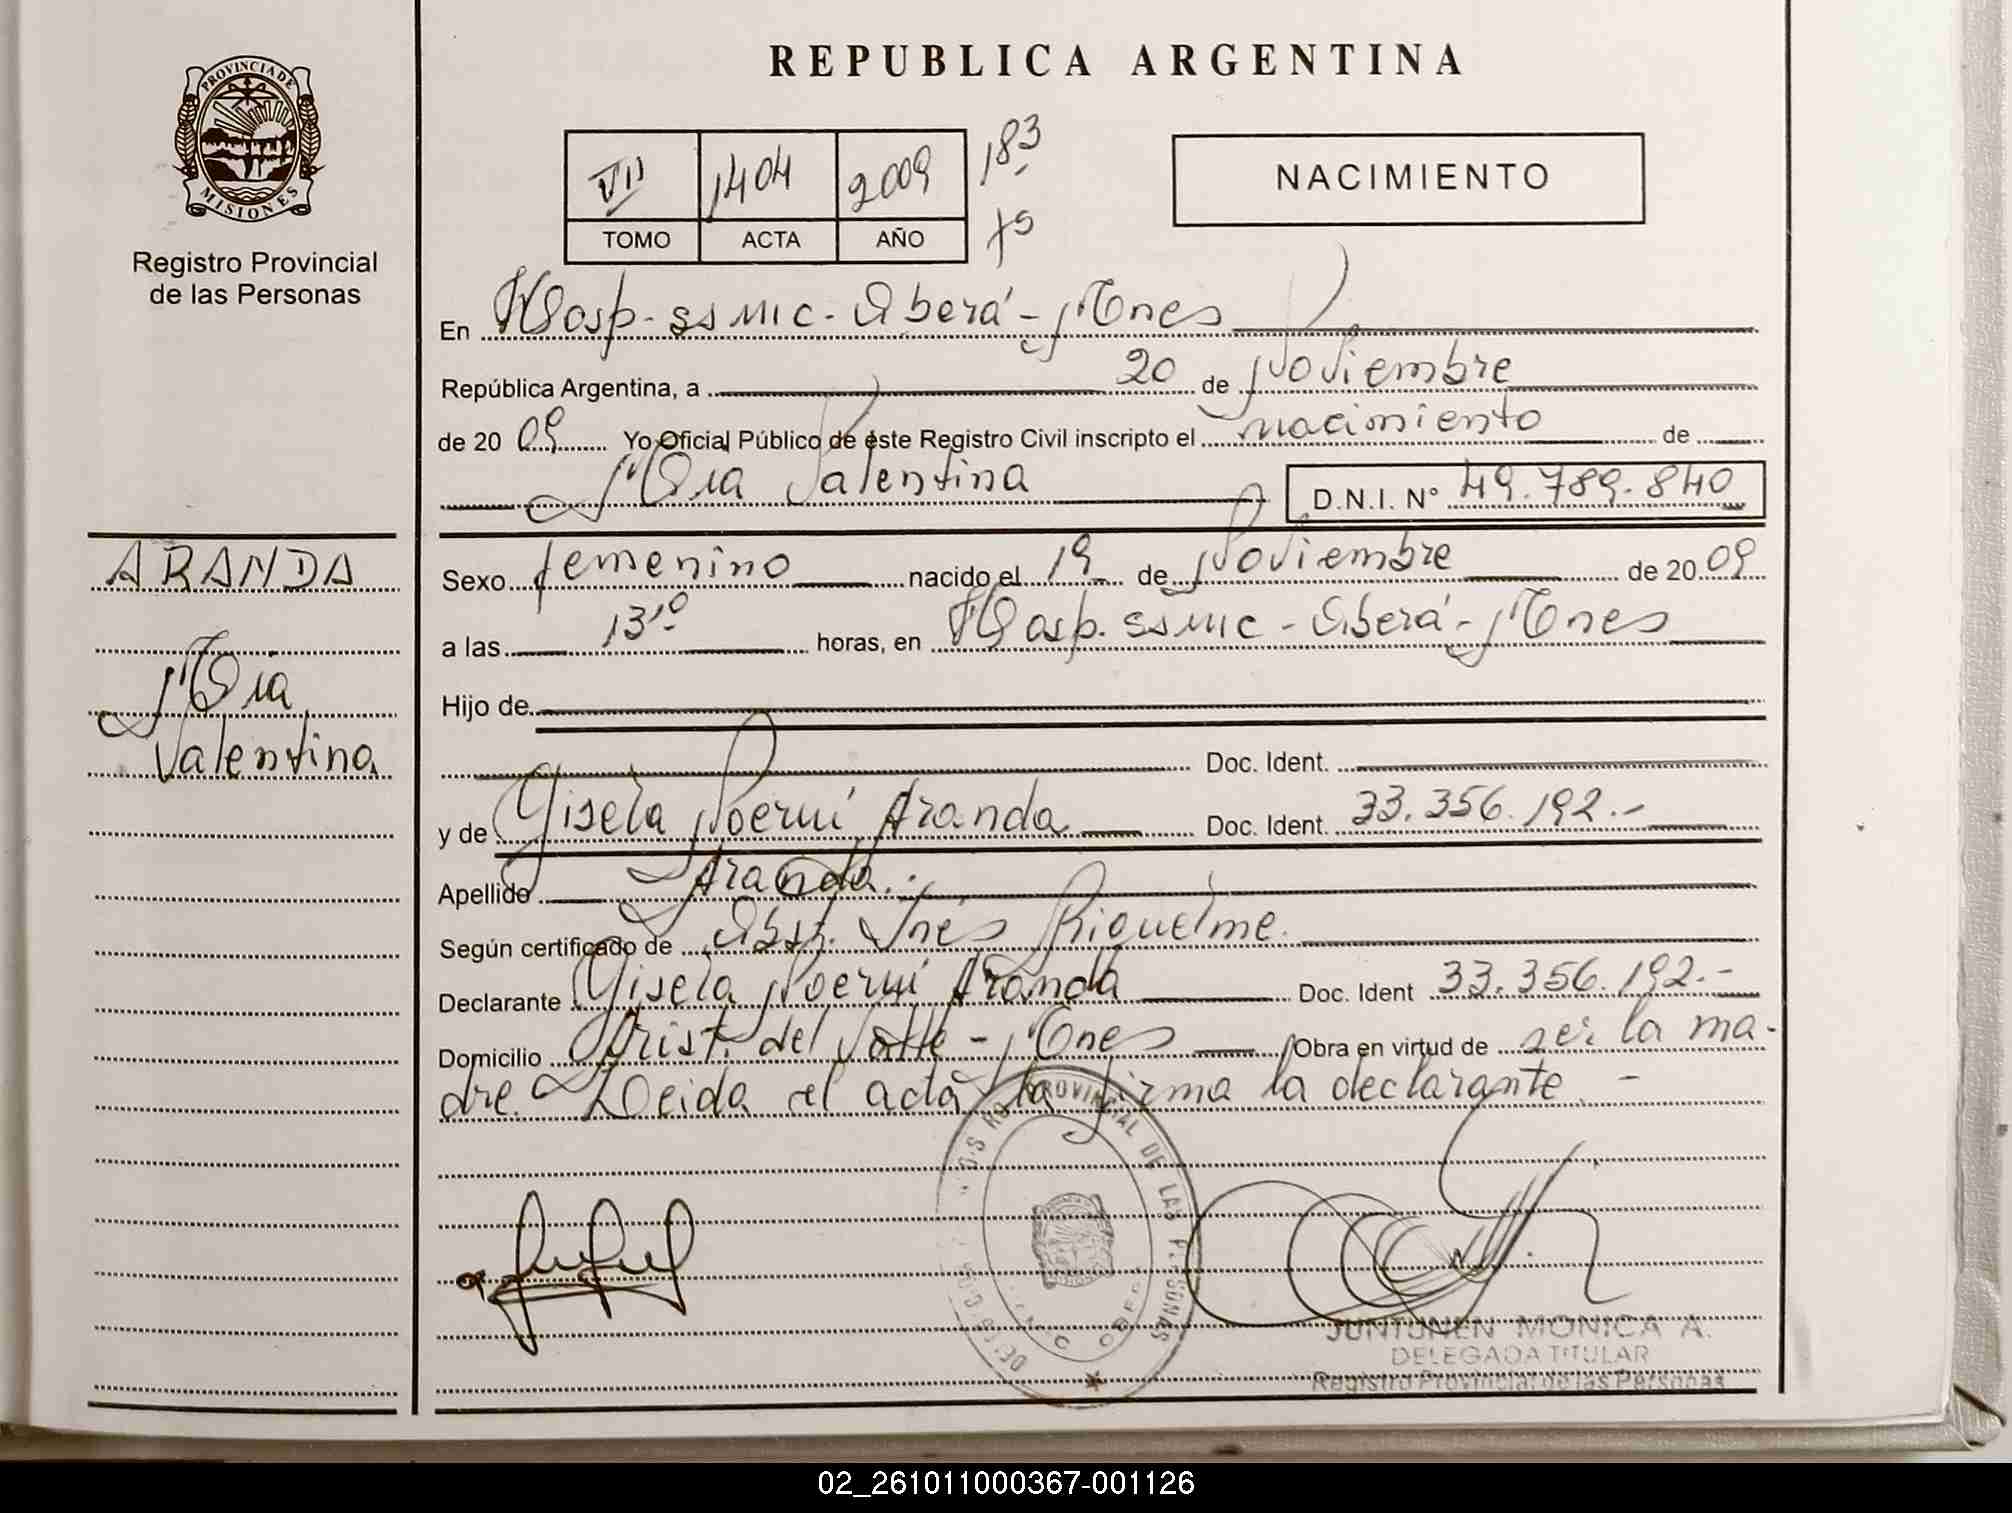 PROVINCIA DE
MISIONES
Registro Provincial
de las Personas
ARANDA
Mia
Valentina
REPUBLICA ARGENTINA
VII 1404 2009 183
TOMO ACTA AÑO
NACIMIENTO
En Hosp. SSMIC - Oberá - Mnes
República Argentina, a 20 de Noviembre
de 20 09 Yo Oficial Público de este Registro Civil inscripto el nacimiento de
Mia Valentina D.N.I. Nº 49.789.840
Sexo femenino nacido el 19 de Noviembre de 20 09
a las 13¹⁰ horas, en Hosp. SSMIC - Oberá - Mnes
Hijo de
Doc. Ident.
y de Gisela Noemí Aranda Doc. Ident. 33.356.192.-
Apellido Aranda.
Según certificado de Obst. Inés Riquelme.
Declarante Gisela Noemí Aranda Doc. Ident 33.356.192.-
Domicilio Arist. del Valle - Mnes Obra en virtud de ser la ma-
dre. Leida el acta la firma la declarante.-
PROVINCIAL DE LAS PERSONAS
JUNTUNEN MONICA A.
DELEGADA TITULAR
Registro Provincial de las Personas
02_261011000367-001126